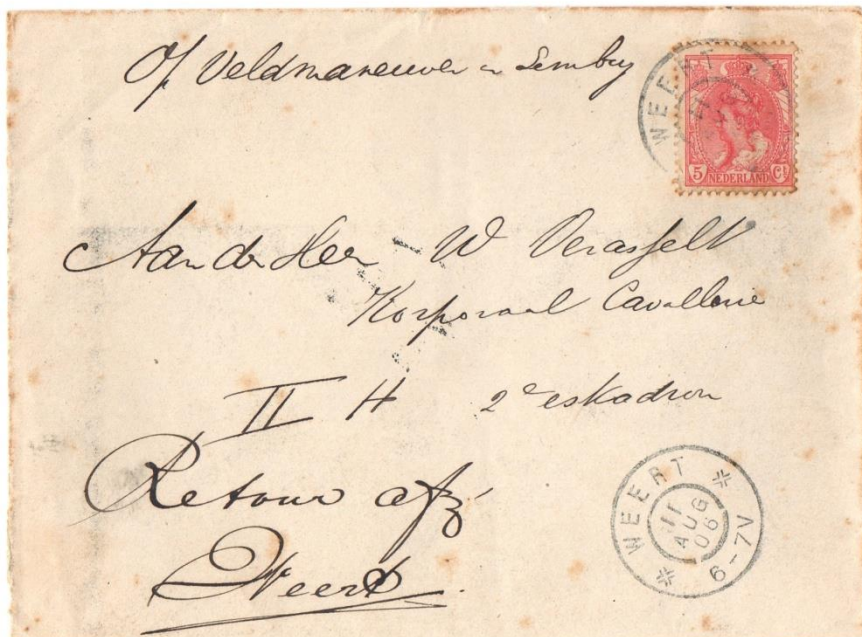 Op Veldmaneuver in Limburg
WEERT
5 Ct
NEDERLAND
Aan den Heer W Verasselt
Korporaal Cavallerie
II H 2e eskadron
Retour afz
Weert
WEERT
11
AUG
06
6-7V